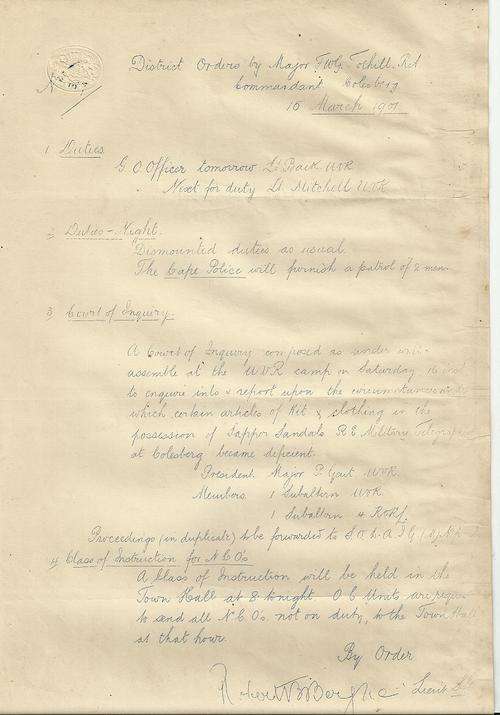 District Orders by Major
Commandant. Colesberg
15 March 1901
1 Duties
G.O. Officer tomorrow Lt Back UVR
Next for duty Lt. Mitchell UVR
2, Duties - Night.
Dismounted duties as usual.
The Cape Police will furnish a patrol of 2 men.
3, Court of Inquiry.
A Court of Inquiry composed as under will
assemble at the UVR camp on Saturday 16 inst
to enquire into & report upon the circumstances
which certain articles of Kit & clothing in the
possession of Sapper Sandals R.E Military Telegraph
at Colesberg became deficient.
President Major P. UVR.
Members 1 Subaltern UVR
1 Subaltern 4
Proceedings (in duplicate) to be forwarded to
4, Class of Instruction for N.C.Os
A Class of Instruction will be held in the
Town Hall at 8 tonight O.C Units are
to send all N.C.Os. not on duty, to the Town Hall
at that hour.
By Order
Lieut